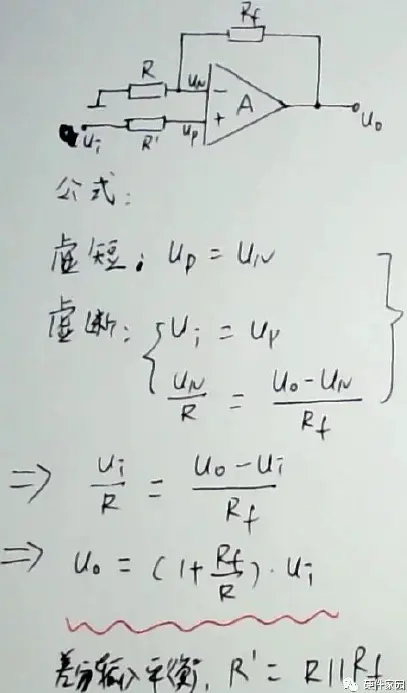 Rf
R
uN
A
R'
uP
ui
uo
公式:
虚短: uP = uN
虚断: { ui = uP
uN/R = (uo - uN)/Rf
=> ui/R = (uo - ui)/Rf
=> uo = (1 + Rf/R) · ui
差分输入平衡, R' = R || Rf
硬件家园